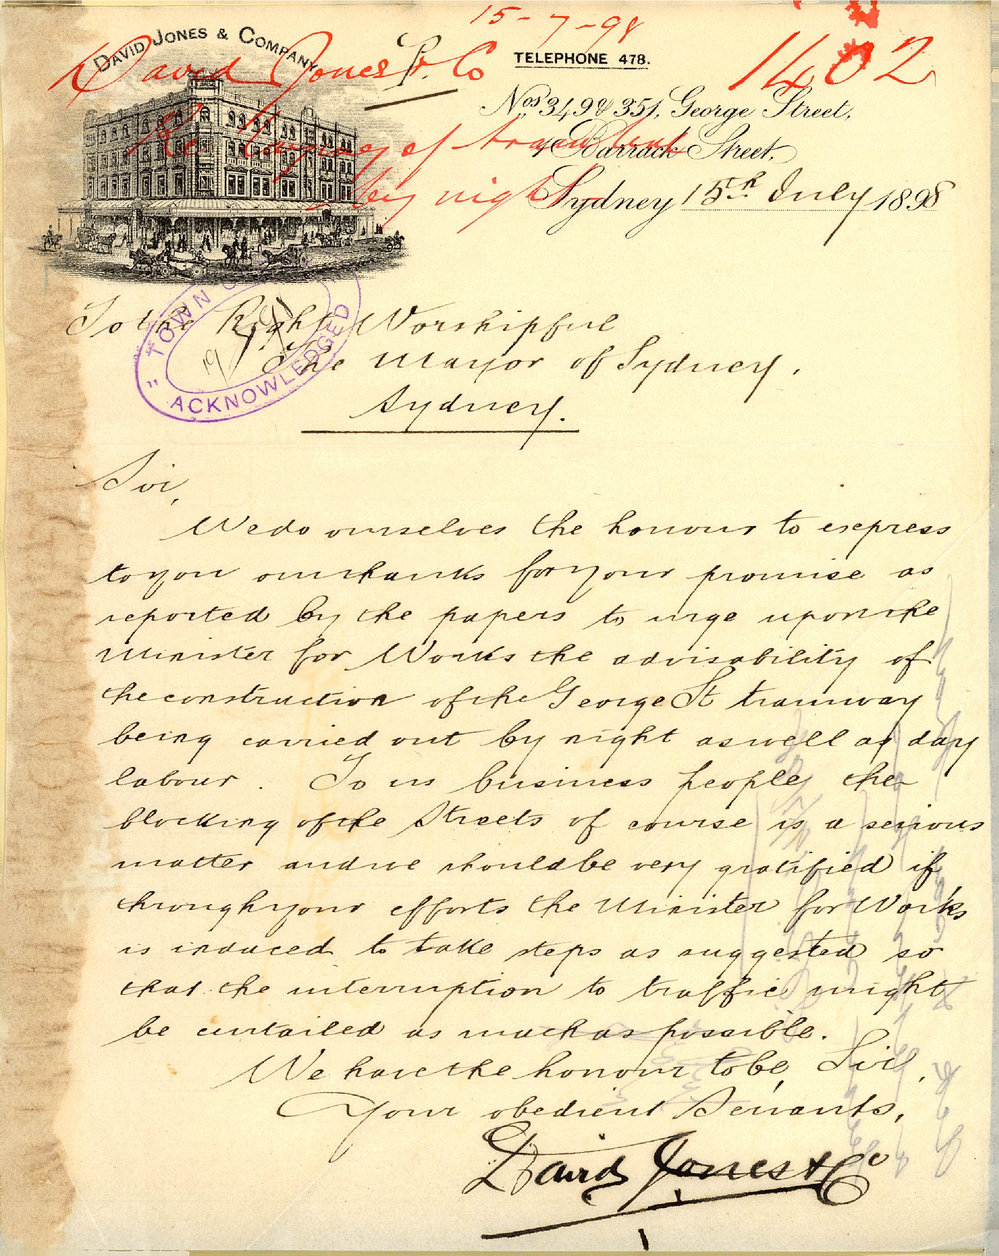 15-7-98
David Jones & Company
TELEPHONE 478.
David Jones & Co
1402
Nos 349 & 351, George Street,
Re laying of tram
& Barrack Street,
by night
Sydney 15th July 1898
TOWN
ACKNOWLEDGED
To the Right Worshipful
The Mayor of Sydney,
Sydney.
Sir,
We do ourselves the honour to express
to you our thanks for your promise as
reported by the papers to urge upon the
Minister for Works the advisability of
the construction of the George St tramway
being carried out by night as well as day
labour. To us business people the
blocking of the Streets of course is a serious
matter and we should be very gratified if
through your efforts the Minister for Works
is induced to take steps as suggested so
that the interruption to traffic might
be curtailed as much as possible.
We have the honour to be, Sir,
Your obedient Servants,
David Jones & Co